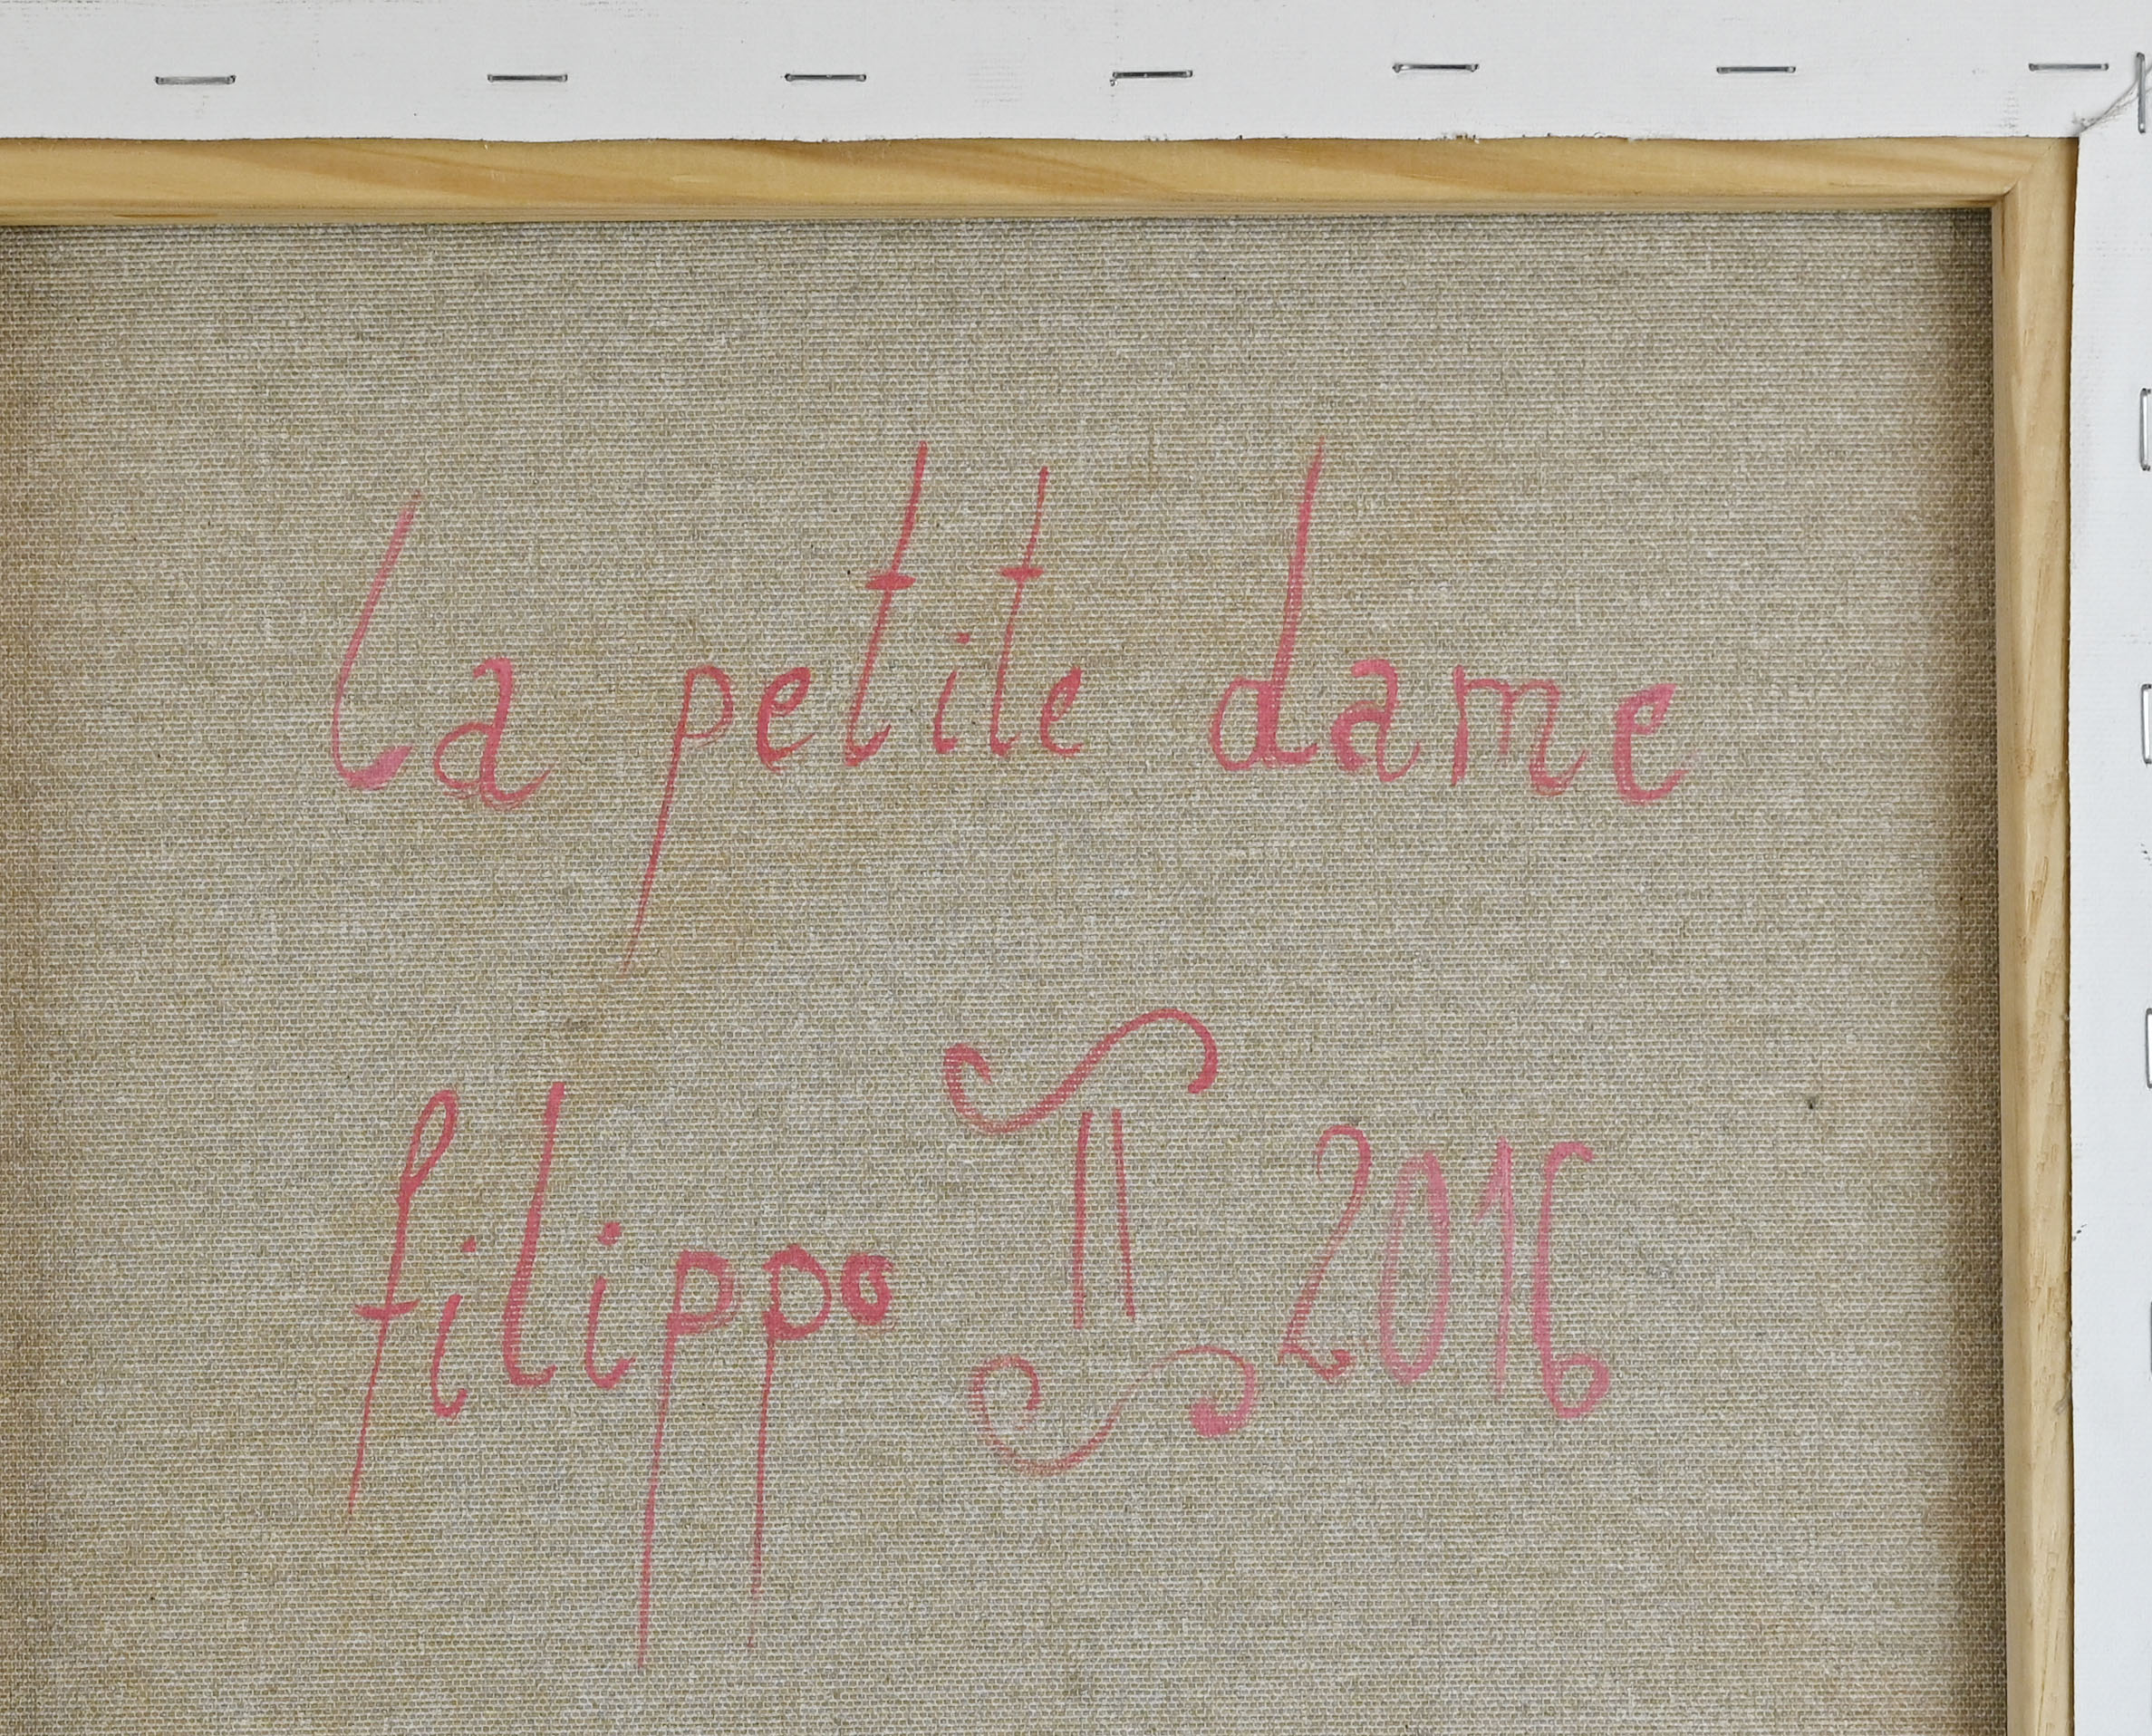 La petite dame
filippo II 2016